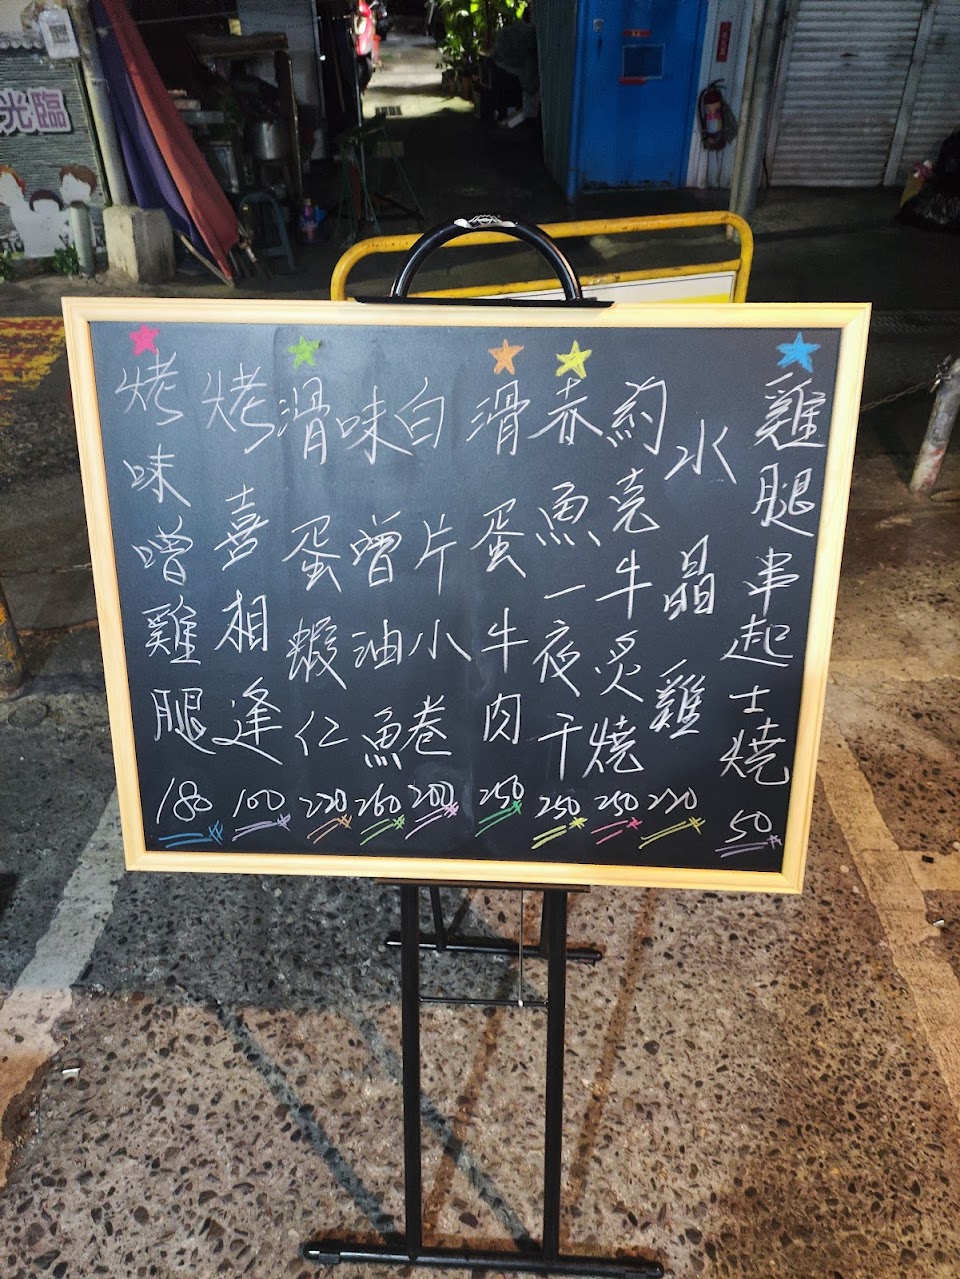 光臨
雞腿串起士燒 50
水晶雞 220
約克牛炙燒 250
赤魚一夜干 250
滑蛋牛肉 250
白片小卷 200
味噌油魚 260
滑蛋蝦仁 220
烤喜相逢 100
烤味噌雞腿 180